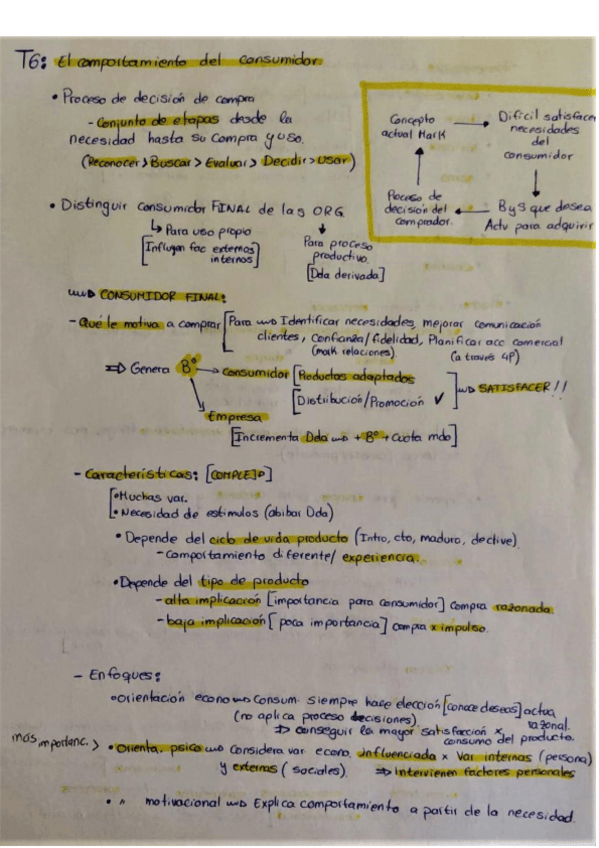 T6: El comportamiento del consumidor.
• Proceso de decisión de compra
- Conjunto de etapas desde la
necesidad hasta su compra y uso.
(Reconocer > Buscar > Evaluar > Decidir > usar)
Concepto
actual Mark
Dificil satisfacer
necesidades
del
consumidor
Proceso de
decisión del
comprador.
B y S que desea
Actv para adquirir
• Distinguir consumidor FINAL de las ORG.
↳ Para uso propio
[Influyen fac externos
internos]
↓
Para proceso
productivo.
[Dda derivada]
CONSUMIDOR FINAL:
- Qué le motiva a comprar [Para Identificar necesidades, mejorar comunicación
clientes, confianza/fidelidad, Planificar acc comercial
(mark relaciones) (a través 4P)
⇒ Genera Bº → Consumidor [Productos adaptados
[Distribución/Promoción ✓ ] SATISFACER!!
Empresa
[Incrementa Dda + Bº + cuota mdo]
- Características: [COMPLEJO]
[• Muchas var.
• Necesidad de estimulos (abibar Dda)
• Depende del ciclo de vida producto (Intro, cto, maduro, declive).
- comportamiento diferente/ experiencia.
• Depende del tipo de producto
- alta implicación [importancia para consumidor] compra razonada.
- baja implicación [poca importancia] compra x impulso.
- Enfoques:
• Orientación econo Consum. siempre hace elección [conoce deseos] actua
(no aplica proceso decisiones). razonal.
⇒ conseguir la mayor satisfacción x
consumo del producto.
más importanc. > • Orienta. psico Considera var econo. influenciada x Var internas (persona)
y externas (sociales). ⇒ Intervienen factores personales
• " motivacional Explica comportamiento a partir de la necesidad.